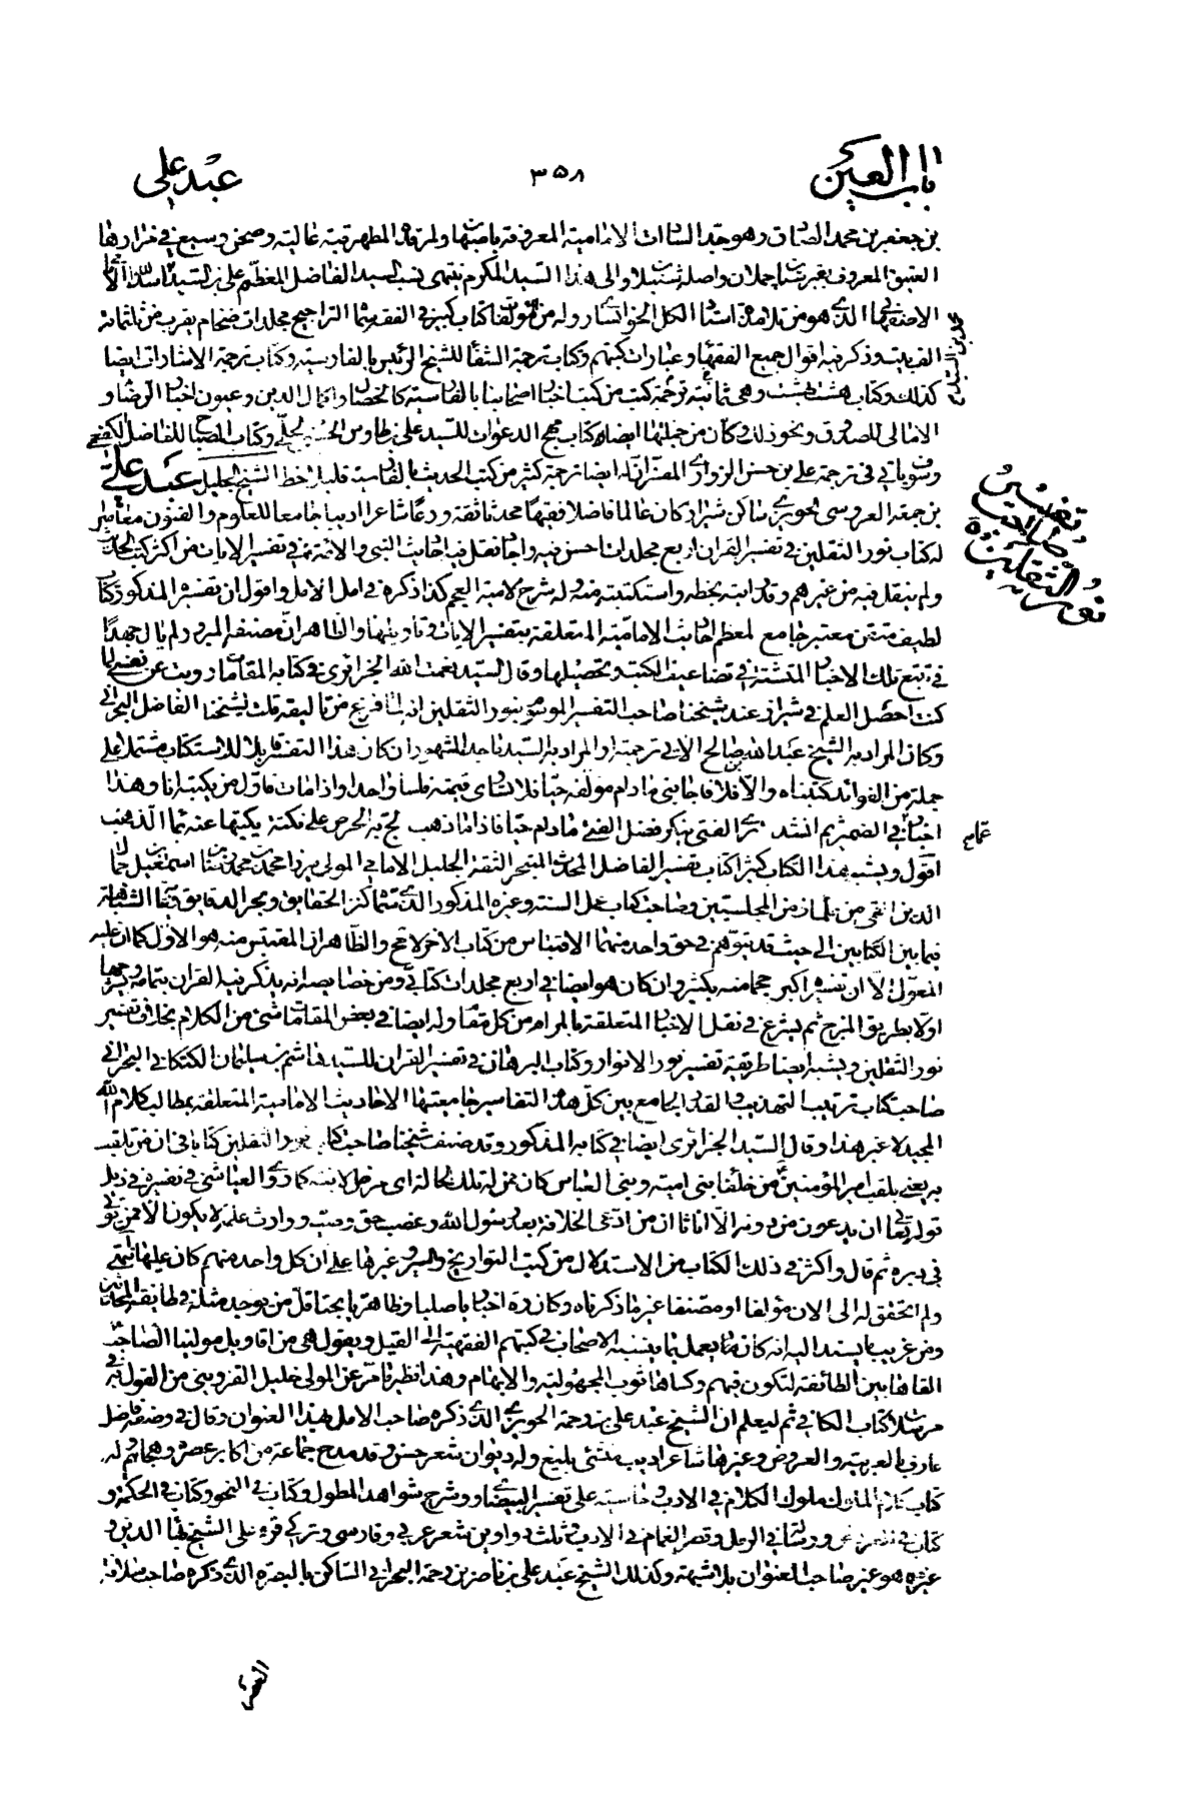 باب العين
٣٥٨
عبد علي
بن جعفر بن محمد الصادق وهو جد السادات الامامية المعروفة باصبهان ولمرقده المطهر قبة عالية وصحن وسيع في مزارها
العتيق المعروف بقبرستان واصله سنبلان والى هذا السيد المكرم ينتمي نسب السيد الفاضل المعظم علي بن السيد
الاصفهاني الذي هو من تلامذة استاد الكل الخوانساري وله من المؤلفات كتاب كبير في الفقه سماه التراجيح مجلدات ضخام يقرب من ثلثمائة
الف بيت وذكر فيه اقوال جميع الفقهاء وعبارات كتبهم وكتاب ترجمة الشفا للشيخ الرئيس بالفارسية وكتاب ترجمة الاشارات ايضا
كذلك وكتاب هشت بهشت وهي ثمانية ترجمة كتب من كتب اخبار اصحابنا بالفارسية كالخصال واكمال الدين وعيون اخبار الرضا و
الامالي للصدوق ونحو ذلك وكان من جملتها ايضا كتاب مهج الدعوات للسيد علي بن طاوس الحسني الحلي وكتاب المصباح للفاضل الكفعمي
وسوف ياتي في ترجمة علي بن حسن الزواري المفسر ان له ايضا ترجمة كثير من كتب الحديث بالفارسية قليل الخط الشيخ الجليل عبد علي
بن جمعة العروسي الحويزي ساكن شيراز كان عالما فاضلا فقيها محدثا ثقة ورعا شاعرا اديبا جامعا للعلوم والفنون معاصر
له كتاب نور الثقلين في تفسير القران اربع مجلدات احسن فيه واجاد نقل فيه احاديث النبي والائمة في تفسير الايات من اكثر كتب الحديث
ولم ينقل فيه من غيرهم وقد رايته بخطه واستكتبته منه وله شرح لامية العجم كذا ذكره في امل الامل واقول ان تفسيره المذكور كتاب
لطيف متقن معتبر جامع لمعظم احاديث الامامية المتعلقة بتفسير الايات وتاويلها والظاهر ان مصنفه المبرور لم يال جهدا
في تتبع تلك الاخبار المتشتتة في تضاعيف الكتب وتحصيلها وقال السيد نعمت الله الجزائري في كتابه المقامات رويت عن
كنت احصل العلم في شيراز عند شيخنا صاحب التفسير الموسوم بنور الثقلين انه لما فرغ من تاليفه قلت لشيخنا الفاضل البحراني
وكان المراد به الشيخ عبد الله بن صالح الاتي ترجمته او المراد به السيد ماجد المشهور ان كان هذا التفسير قابلا للاستكتاب مشتملا على
جملة من الفوائد كتبناه والا فلا فاجابني ما دام مؤلفه حيا فلا تساوي قيمته فلسا واحدا واذا مات فاول من يكتبه انا وهذا
اخبار في الضمير ثم انشد ترى الفتى ينكر فضل الفتى ما دام حيا فاذا ما ذهب لج به الحرص على نكتة يكتبها عنه بماء الذهب
اقول ويشبه هذا الكتاب كثيرا كتاب تفسير الفاضل المحدث المتبحر الثقة الجليل الامامي المولى ميرزا محمد بن محمد رضا بن اسمعيل بن جمال
الدين القمي من تلامذة المجلسيين وصاحب كتاب عمل السنة وغيره المذكور الذي سماه كنز الحقايق وبحر الدقايق
فيما بين الكتابين الى حيث قد يتوهم في حق واحد منهما الاقتباس من كتاب الاخر لا محالة والظاهر ان المقتبس منه هو الاول كما ان عليه
المعول الا ان تفسيره اكبر حجما منه بكثير وان كان هو ايضا في اربع مجلدات كتابي ومن خصايصه انه يذكر فيه القران بتمامه
اولا بطريق المزج ثم يشرع في نقل الاخبار المتعلقة بالمرام من كل مقام وله ايضا في بعض المقامات شيء من الكلام بخلاف تفسير
نور الثقلين ويشبه ايضا طريقة تفسير نور الانوار وكتاب البرهان في تفسير القران للسيد هاشم بن سليمان الكتكاني البحراني
صاحب كتاب ترتيب التهذيب والقدر الجامع بين كل هذه التفاسير جامعيتها الاحاديث الامامية المتعلقة بمطالب كلام الله
المجيد لا غير هذا وقال السيد الجزائري ايضا في كتابه المذكور وقد صنف شيخنا صاحب كتاب نور الثقلين كتابا في ان من تلقب
به يعني بلقب امير المؤمنين من خلفاء بني امية وبني العباس كان ممن له تلك الحالة اي مرض الابنة كما روى العياشي في تفسيره في ذيل
قوله تعالى ان يدعون من دونه الا اناثا ان من ادعى الخلافة بعد رسول الله وغصب حق وصيه ووارث علمه لا يكون الا ممن يؤتى
في دبره ثم قال واكثر في ذلك الكتاب من الاستدلال من كتب التواريخ والسير وغيرها على ان كل واحد منهم كان عليها انتهى
ولم اتحقق له الى الان مؤلفا او مصنفا غير ما ذكرناه وكان ره اخباريا صلبا وظاهريا بحتا قل من يوجد مثله في طائفة المحدثين
ومن غريب ما يستند اليه انه كان ره يعمل بما ينسبه الاصحاب في كتبهم الفقهية الى القيل ويقول هي من اقاويل مولينا الصاحب
القاها بين الطائفة لتكون فيهم وكساها ثوب المجهولية والابهام وهذا نظير ما مر عن المولى خليل القزويني من القول به في
مرسلات كتاب الكافي ثم ليعلم ان الشيخ عبد علي بن رحمة الحويزي الذي ذكره صاحب الامل بهذا العنوان وقال في وصفه فاضل
عارف بالعربية والعروض وغيرها شاعر اديب منشئ بليغ وله ديوان شعر حسن وقد مدح جماعة من اكابر عصره وهجاهم له
كتاب كلام الملوك ملوك الكلام في الادب وحاشية على تفسير البيضاوي وشرح شواهد المطول وكتاب في النحو وكتاب في الحكمة و
كتاب في ورسالة في الرمل وقصر الغمام في الادب وثلث دواوين شعر عربي وفارسي وتركي قرء على الشيخ بهاء الدين و
غيره هو غير صاحب العنوان بلا شبهة وكذلك الشيخ عبد علي بن ناصر بن رحمة البحراني الساكن بالبصرة الذي ذكره صاحب سلافة
العصر
محمد بن السيد
تفسير
صاحب
نور الثقلين